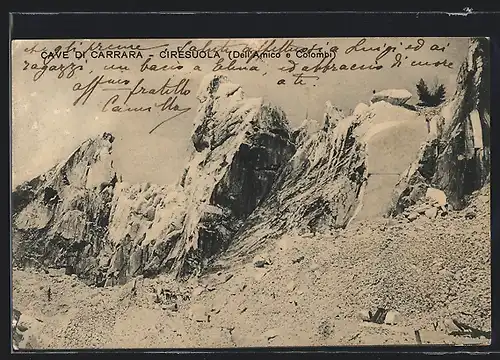 CAVE DI CARRARA - CIRESUOLA (Dell'Amico e Colombi)
affettuosi a Luigi ed ai
ragazzi, un bacio a Elena, ed abbraccio di cuore
a te,
aff. fratello
Camillo